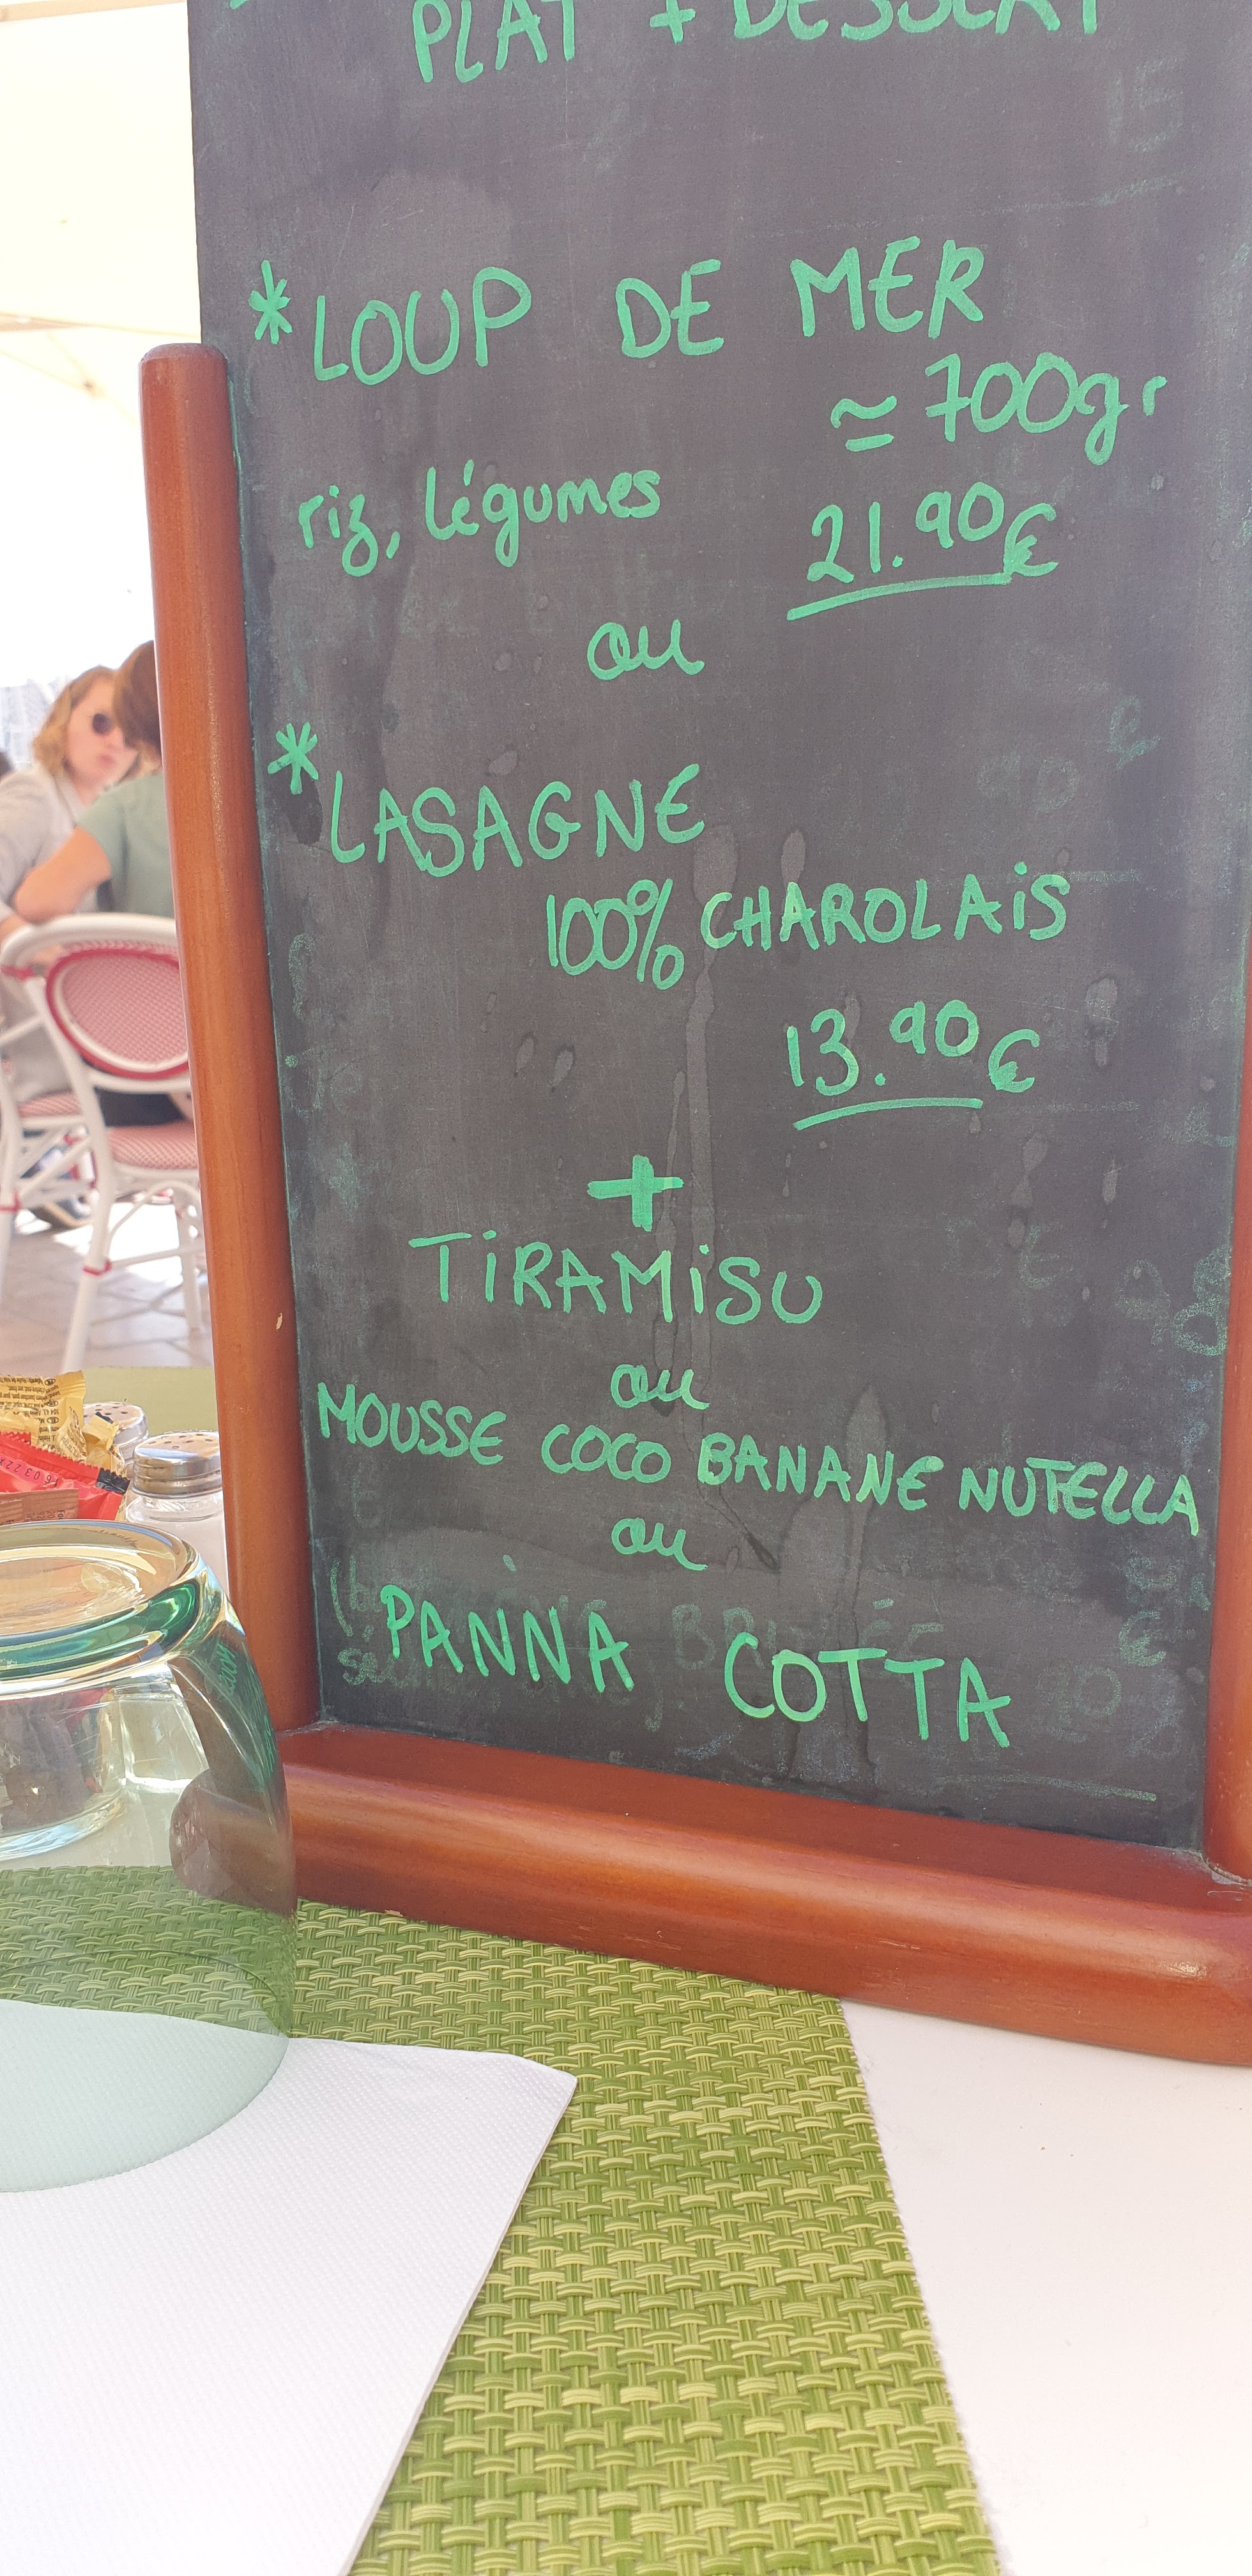 PLAT + DESSERT
* LOUP DE MER
≃ 700gr
riz, légumes 21.90€
ou
* LASAGNE
100% CHAROLAiS
13.90€
+
TiRAMiSU
ou
MOUSSE COCO BANANE NUTELLA
ou
PANNA COTTA